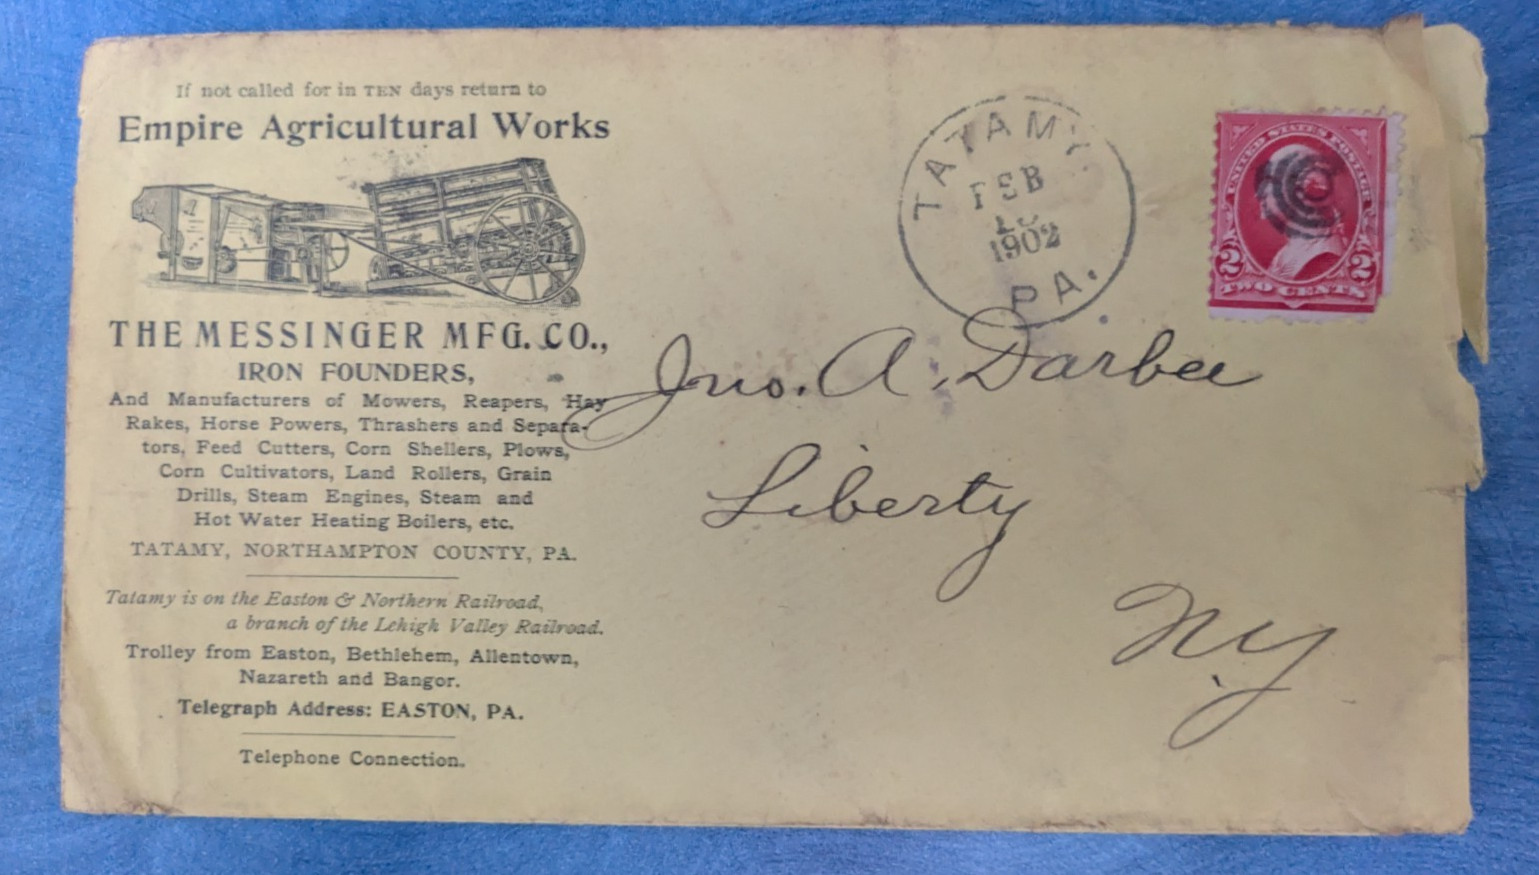 If not called for in TEN days return to
Empire Agricultural Works
THE MESSINGER MFG. CO.,
IRON FOUNDERS,
And Manufacturers of Mowers, Reapers, Hay
Rakes, Horse Powers, Thrashers and Separa-
tors, Feed Cutters, Corn Shellers, Plows,
Corn Cultivators, Land Rollers, Grain
Drills, Steam Engines, Steam and
Hot Water Heating Boilers, etc.
TATAMY, NORTHAMPTON COUNTY, PA.
Tatamy is on the Easton & Northern Railroad,
a branch of the Lehigh Valley Railroad.
Trolley from Easton, Bethlehem, Allentown,
Nazareth and Bangor.
Telegraph Address: EASTON, PA.
Telephone Connection.
TATAMY
FEB
1902
PA.
UNITED STATES POSTAGE
2 2
TWO CENTS
Jno. A. Darbee
Liberty
NY